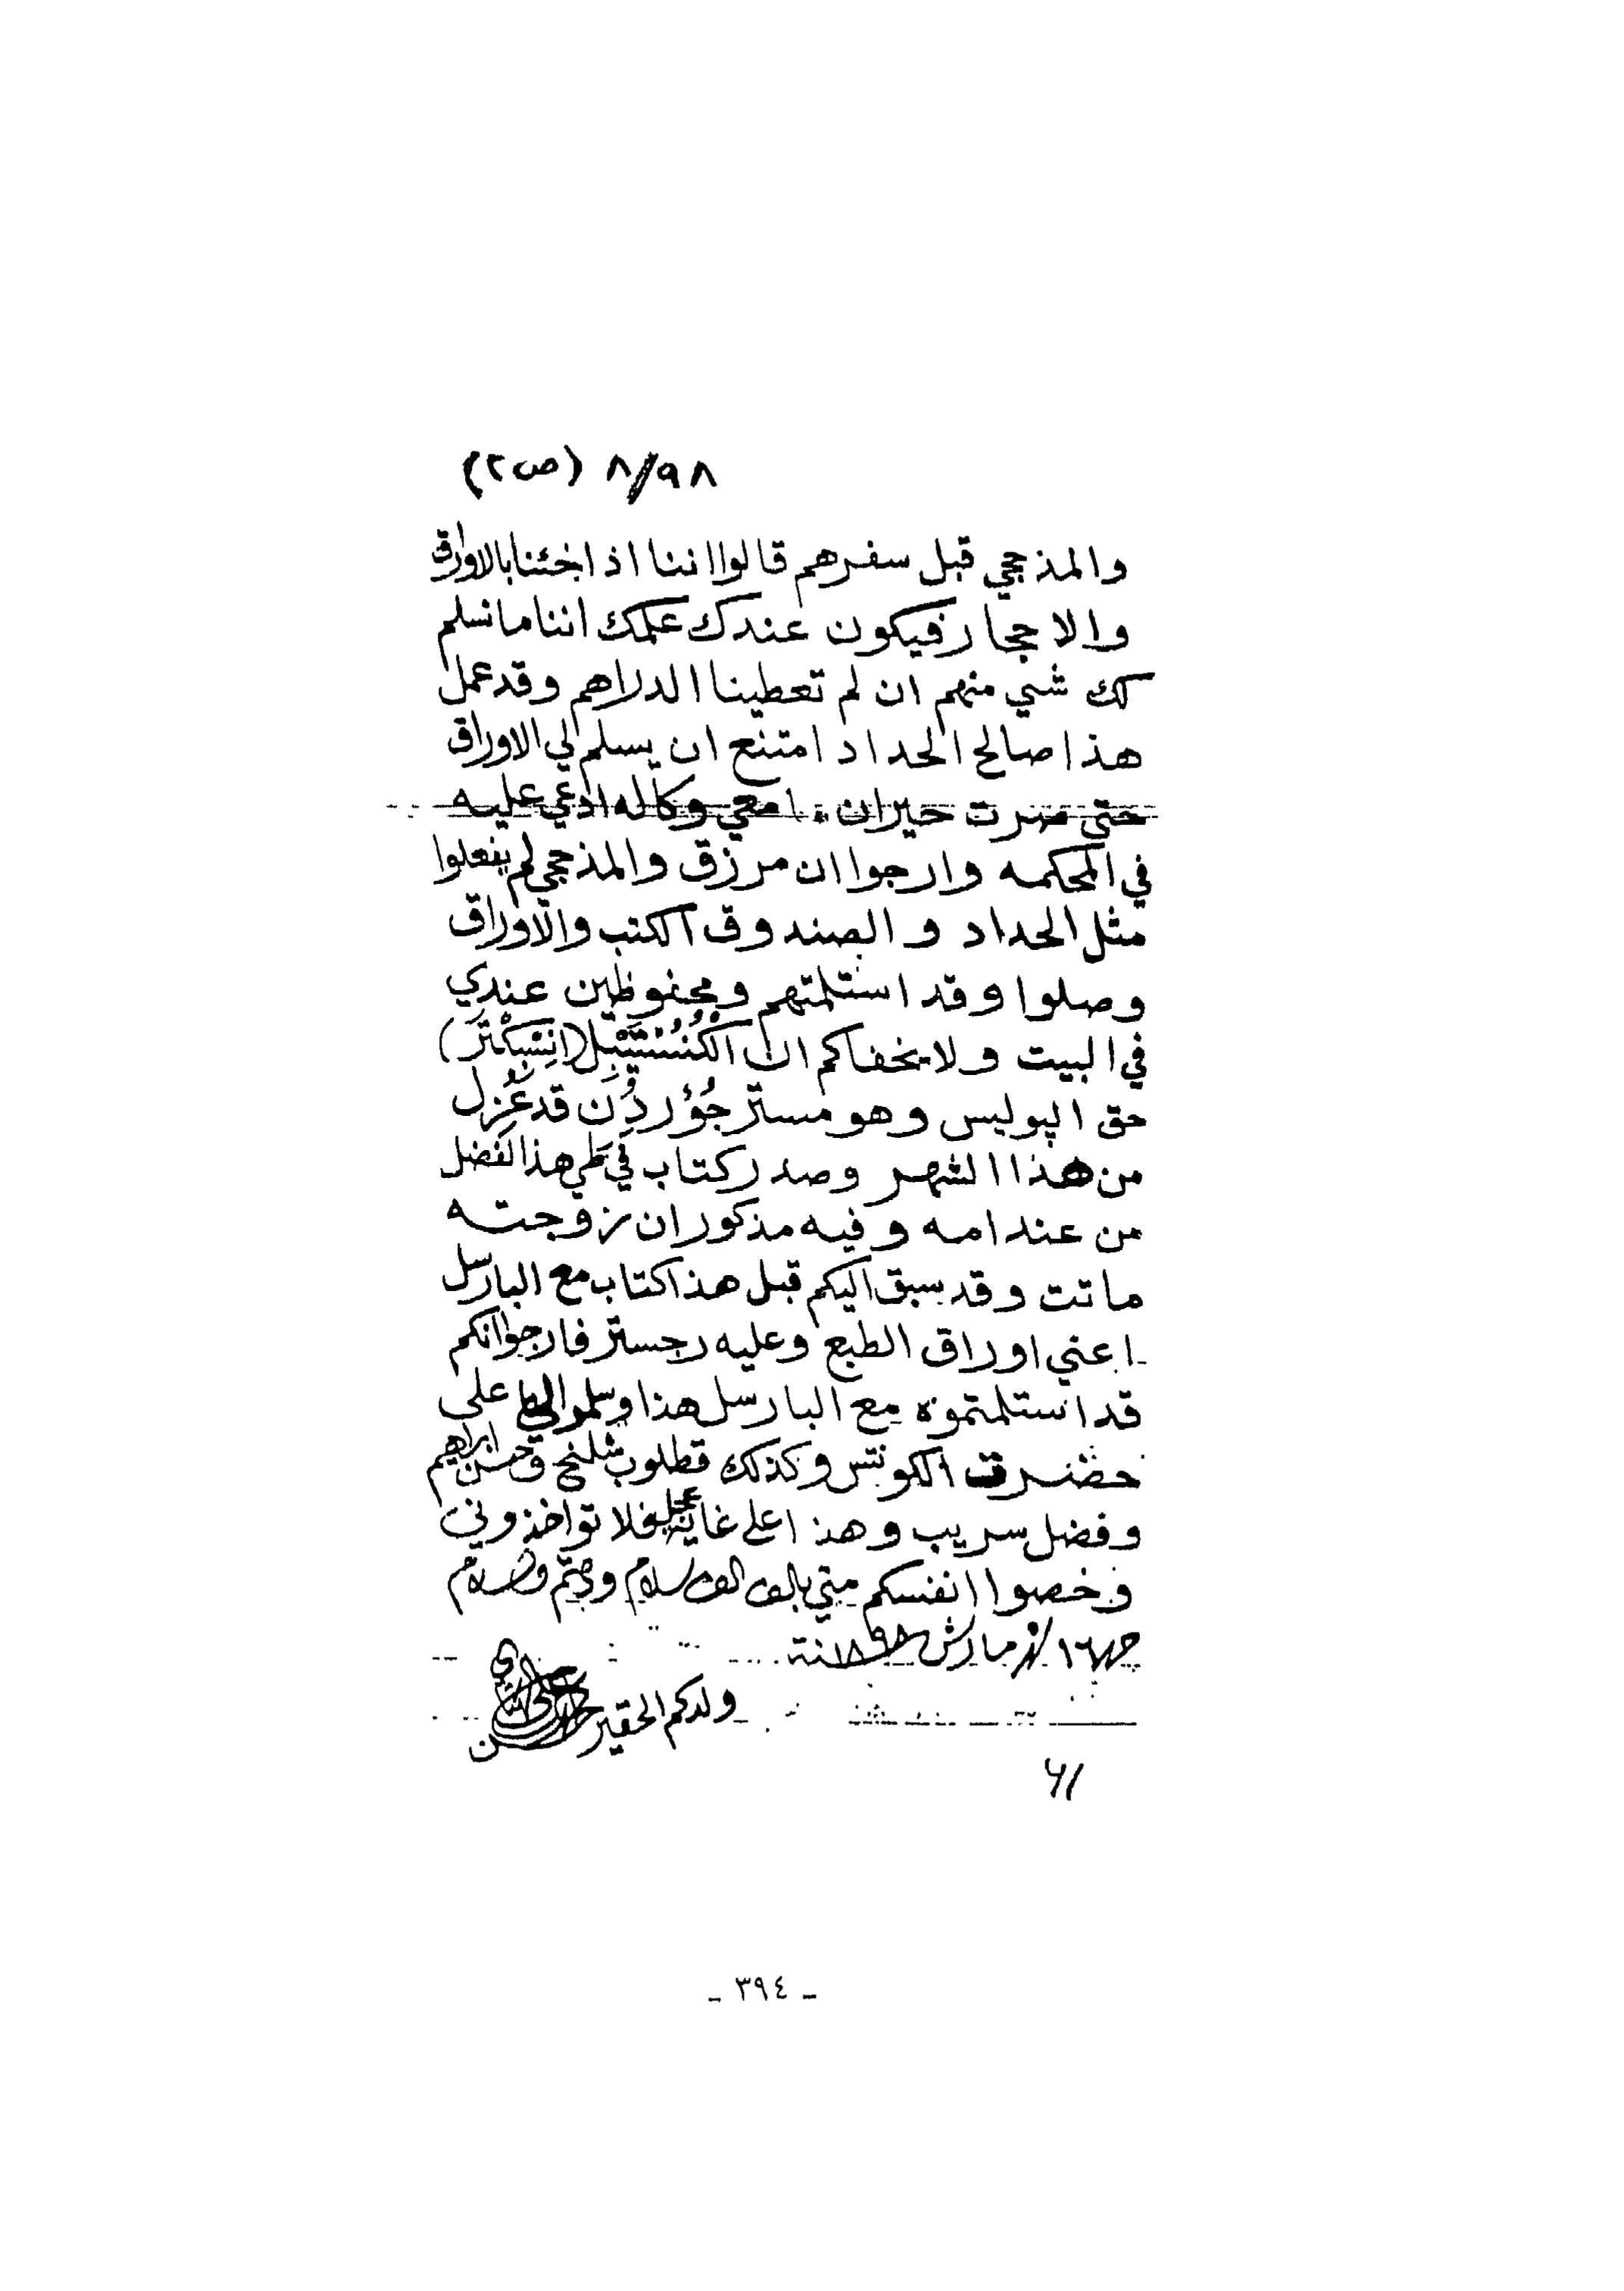 ٨/٩٨ (ص٢)
والمذحجي قبل سفرهم قالوا اننا اذا جئنا بالاوراق
والاحجار فيكون عندك علمك اننا ما نسلم
لك شي منهم ان لم تعطينا الدراهم وقد عمل
هذا صالح الحداد امتنع ان يسلم لي الاوراق
حتى صرت حيران معي وكاله ادعي عليه
في المحكمه وارجوا ان مرزق والمذحجي لم يفعلوا
مثل الحداد والصندوق الكتب والاوراق
وصلوا وقد استلمتهم ومحفوظين عندي
في البيت ولا يخفاكم ان الكُنُسْتَيْبِل (انِسْبِكْتَر)
حق البوليس وهو مستر جُوْردُن قد عُزِل
من هذا الشهر وصدر كتاب في طي هذا لفضل
من عند امه وفيه مذكور ان زوجته
ماتت وقد سبق اليكم قبل هذا كتاب مع البارسل
اعني اوراق الطبع وعليه رجستر فارجوا انكم
قد استلمتموه مع البارسل هذا وسلموا لي على
حضرت الكونتس وكذلك قطلوب شلنج وحسن ابراهيم
وفضل سريب وهذا على غاية عجل فلا تواخذوني
وخصوا انفسكم مني بالف الف سلام ودمتم والسلام
١٦ شهر مارش ١٨٩٨ سنة
ولدكم الحقير
٦١
ـ ٣٩٤ ـ